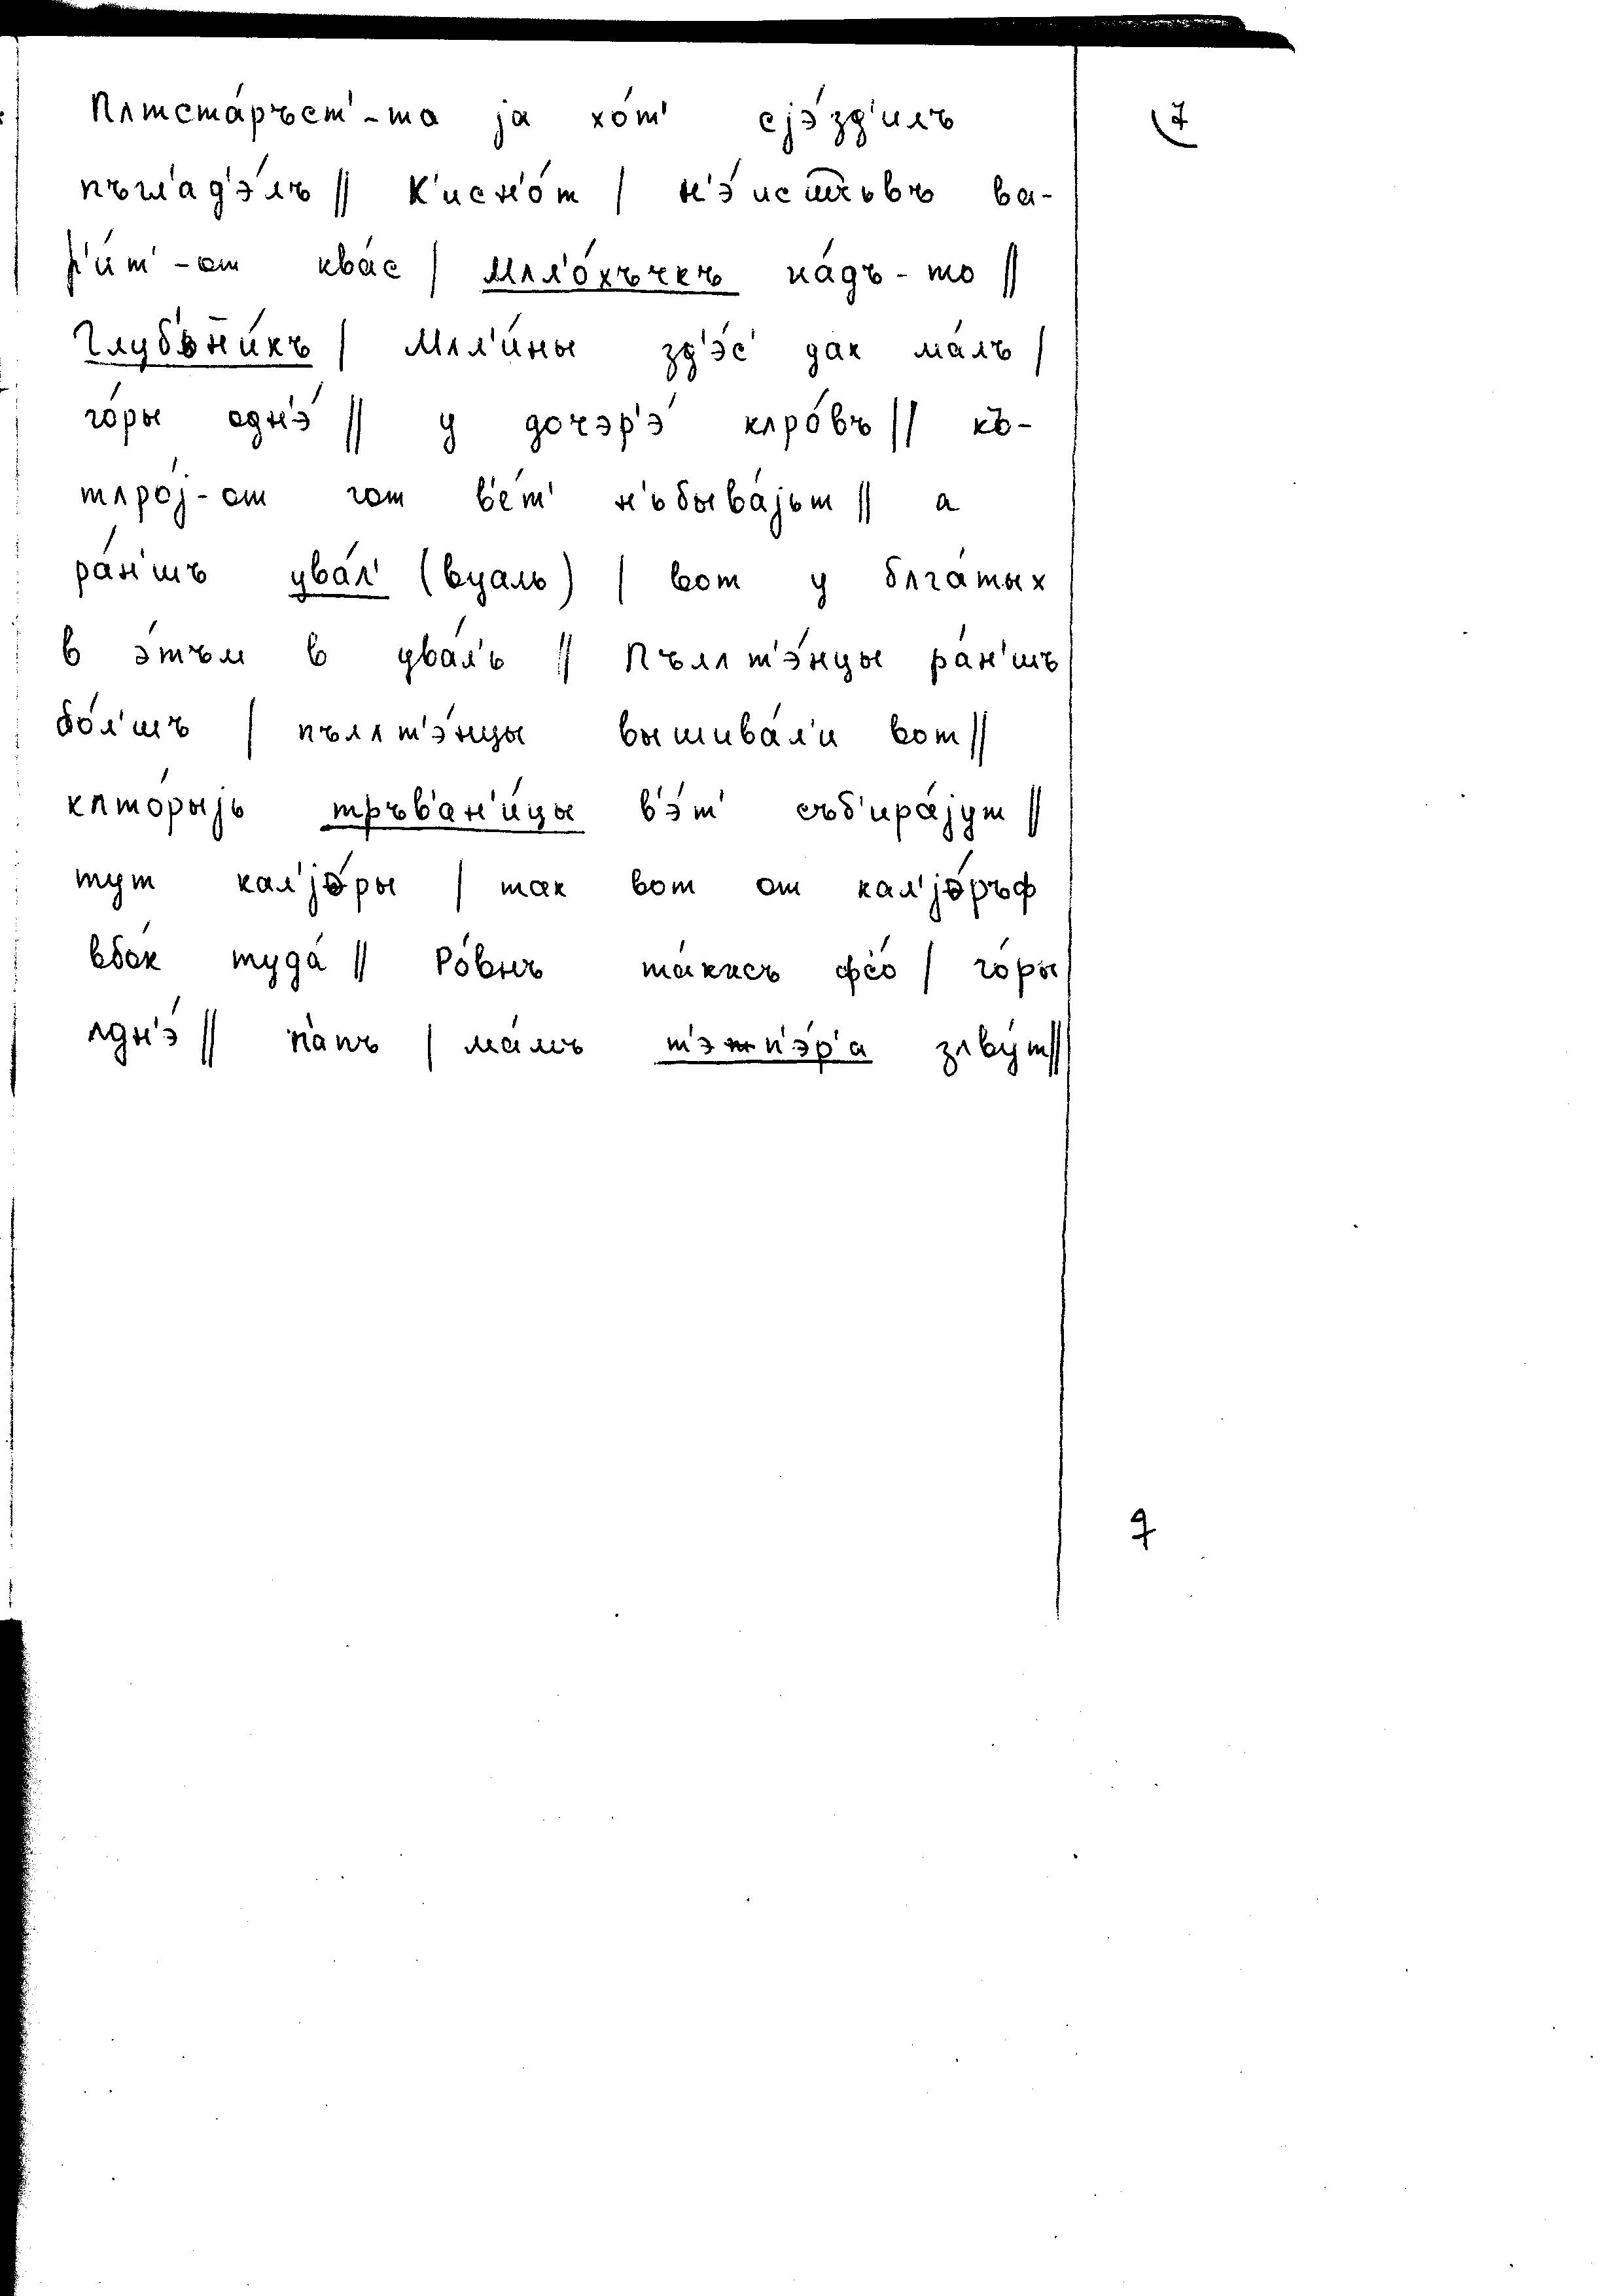 Пʌтста́ръст'-та ја хо́т' сјэ́зд'илъ 7
пъгл'ад'э́лъ || К'исн'о́т | н'э́исштьвъ ва-
р'и́т'-от ква́с | Мʌл'о́хъчкъ на́дъ-то ||
Глуб'ьн'и́къ | Мʌл'и́ны зд'э́с' дак ма́лъ |
го́ры одн'э́ || у дочэр'э́ кʌро́въ || къ-
тʌро́ј-от гот в'е́т' н'ьбыва́јьт || а
ра́н'шъ ува́л' (вуаль) | вот у бʌга́тых
в э́тъм в ува́л'ь || Пълʌт'э́нцы ра́н'шъ
бо́л'шъ | пълʌт'э́нцы вышива́л'и вот ||
кʌто́рыјь тръв'ан'и́цы в'э́т' съб'ира́јут ||
тут кал'јо́ры | так вот от кал'јо́ръф
вбо́к туда́ || Ро́внъ та́кʌсъ фс'о́ | го́ры
ʌдн'э́ || па́пъ | ма́мъ т'эп'э́р'а зʌву́т ||
7